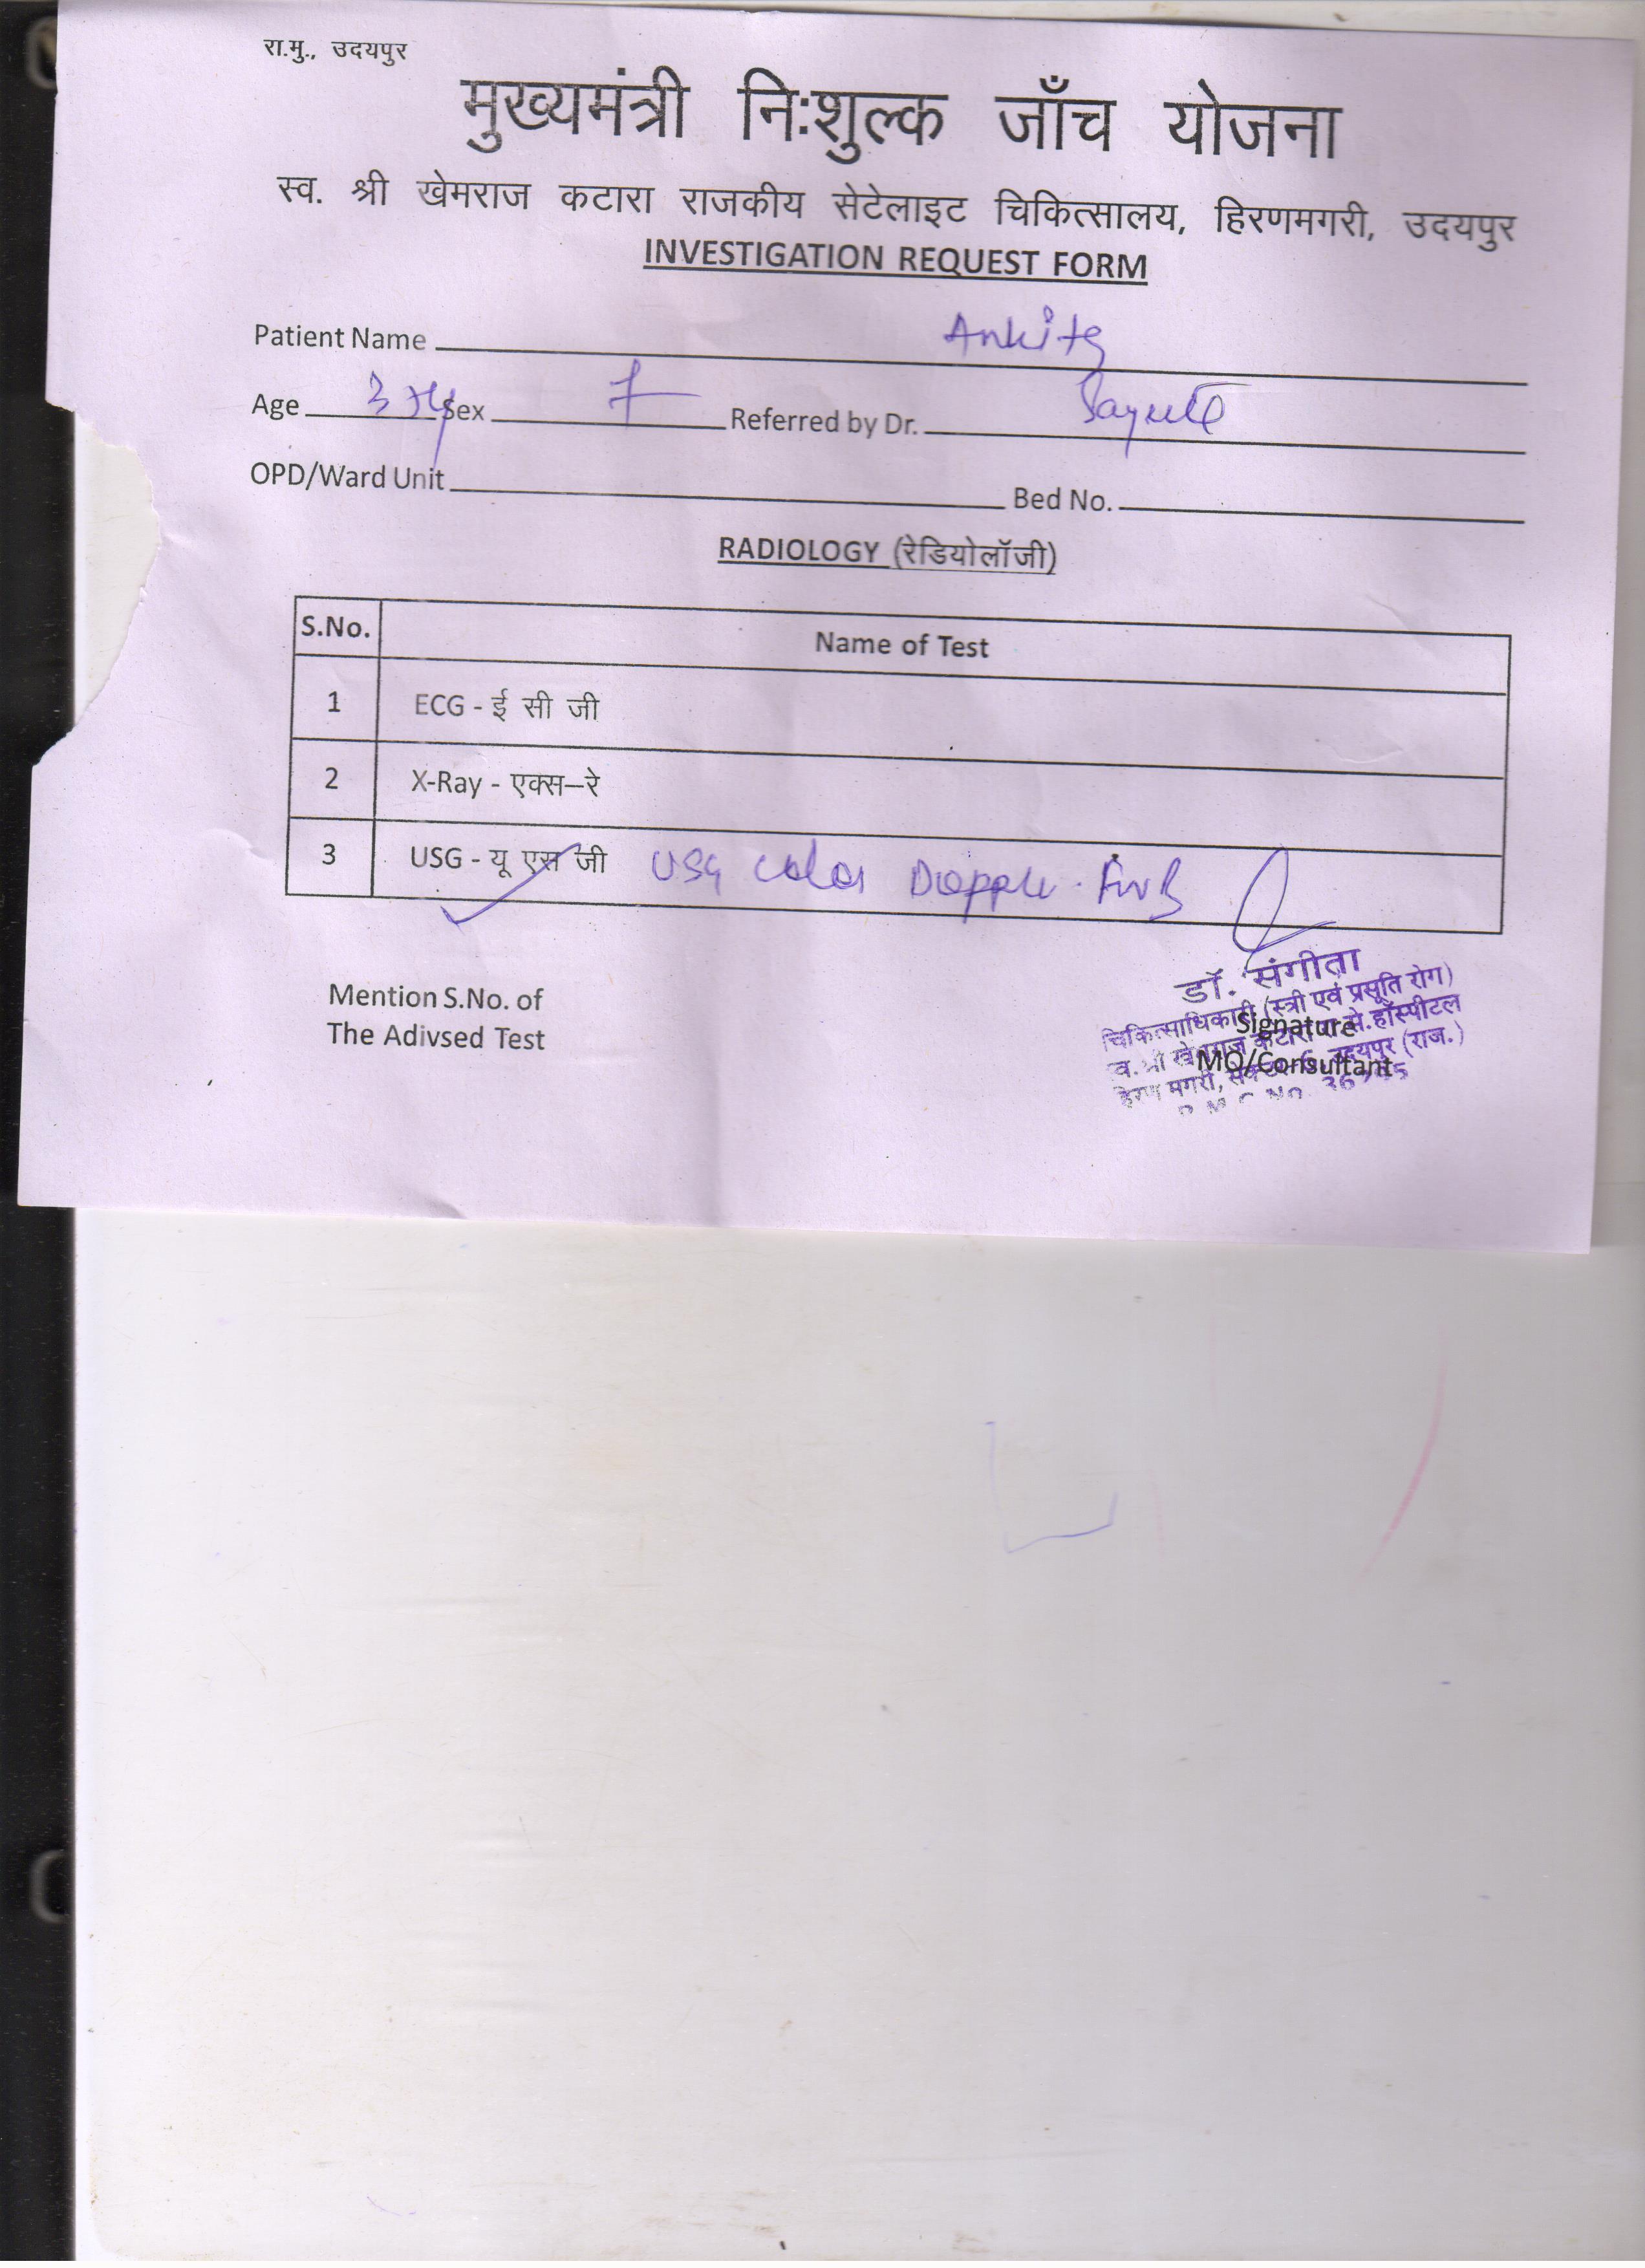 रा.मु., उदयपुर
मुख्यमंत्री निःशुल्क जाँच योजना
स्व. श्री खेमराज कटारा राजकीय सेटेलाइट चिकित्सालय, हिरणमगरी, उदयपुर
INVESTIGATION REQUEST FORM
Patient Name Ankita
Age Sex F Referred by Dr.
OPD/Ward Unit Bed No.
RADIOLOGY (रेडियोलॉजी)
S.No. Name of Test
1 ECG - ई सी जी
2 X-Ray - एक्स–रे
3 USG - यू एस जी USG Color Doppler
Mention S.No. of
The Adivsed Test
डॉ. संगीता
चिकित्साधिकारी (स्त्री एवं प्रसूति रोग)
Signature
MO/Consultant